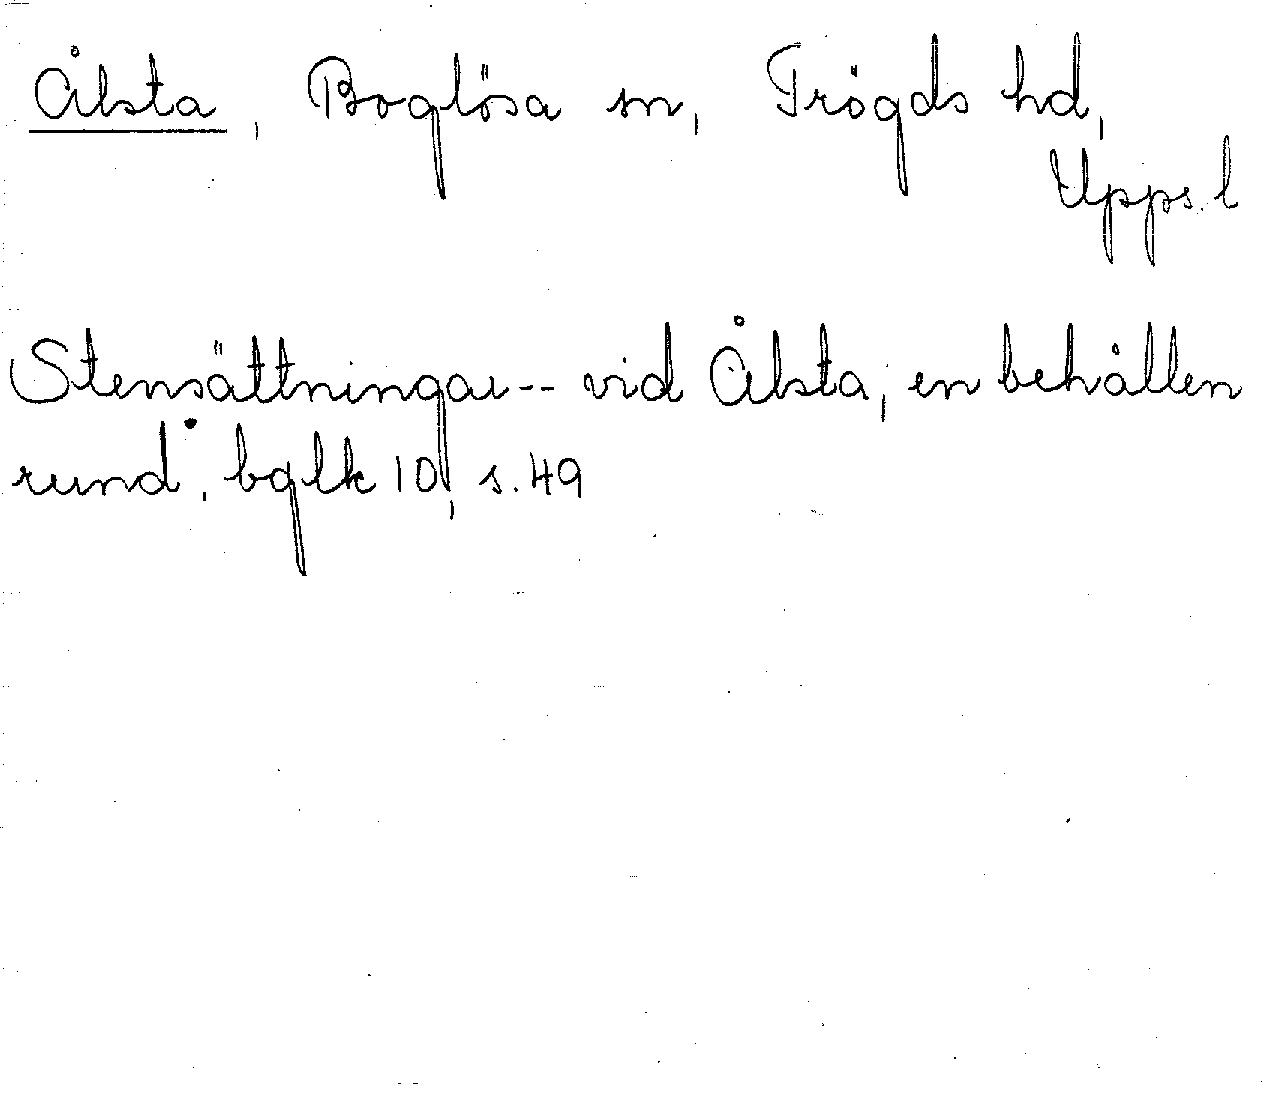 Ålsta, Boglösa sn, Trögds hd,
Upps. l
Stensättningar -- vid Ålsta, en behållen
rund, bglk 10, s. 49